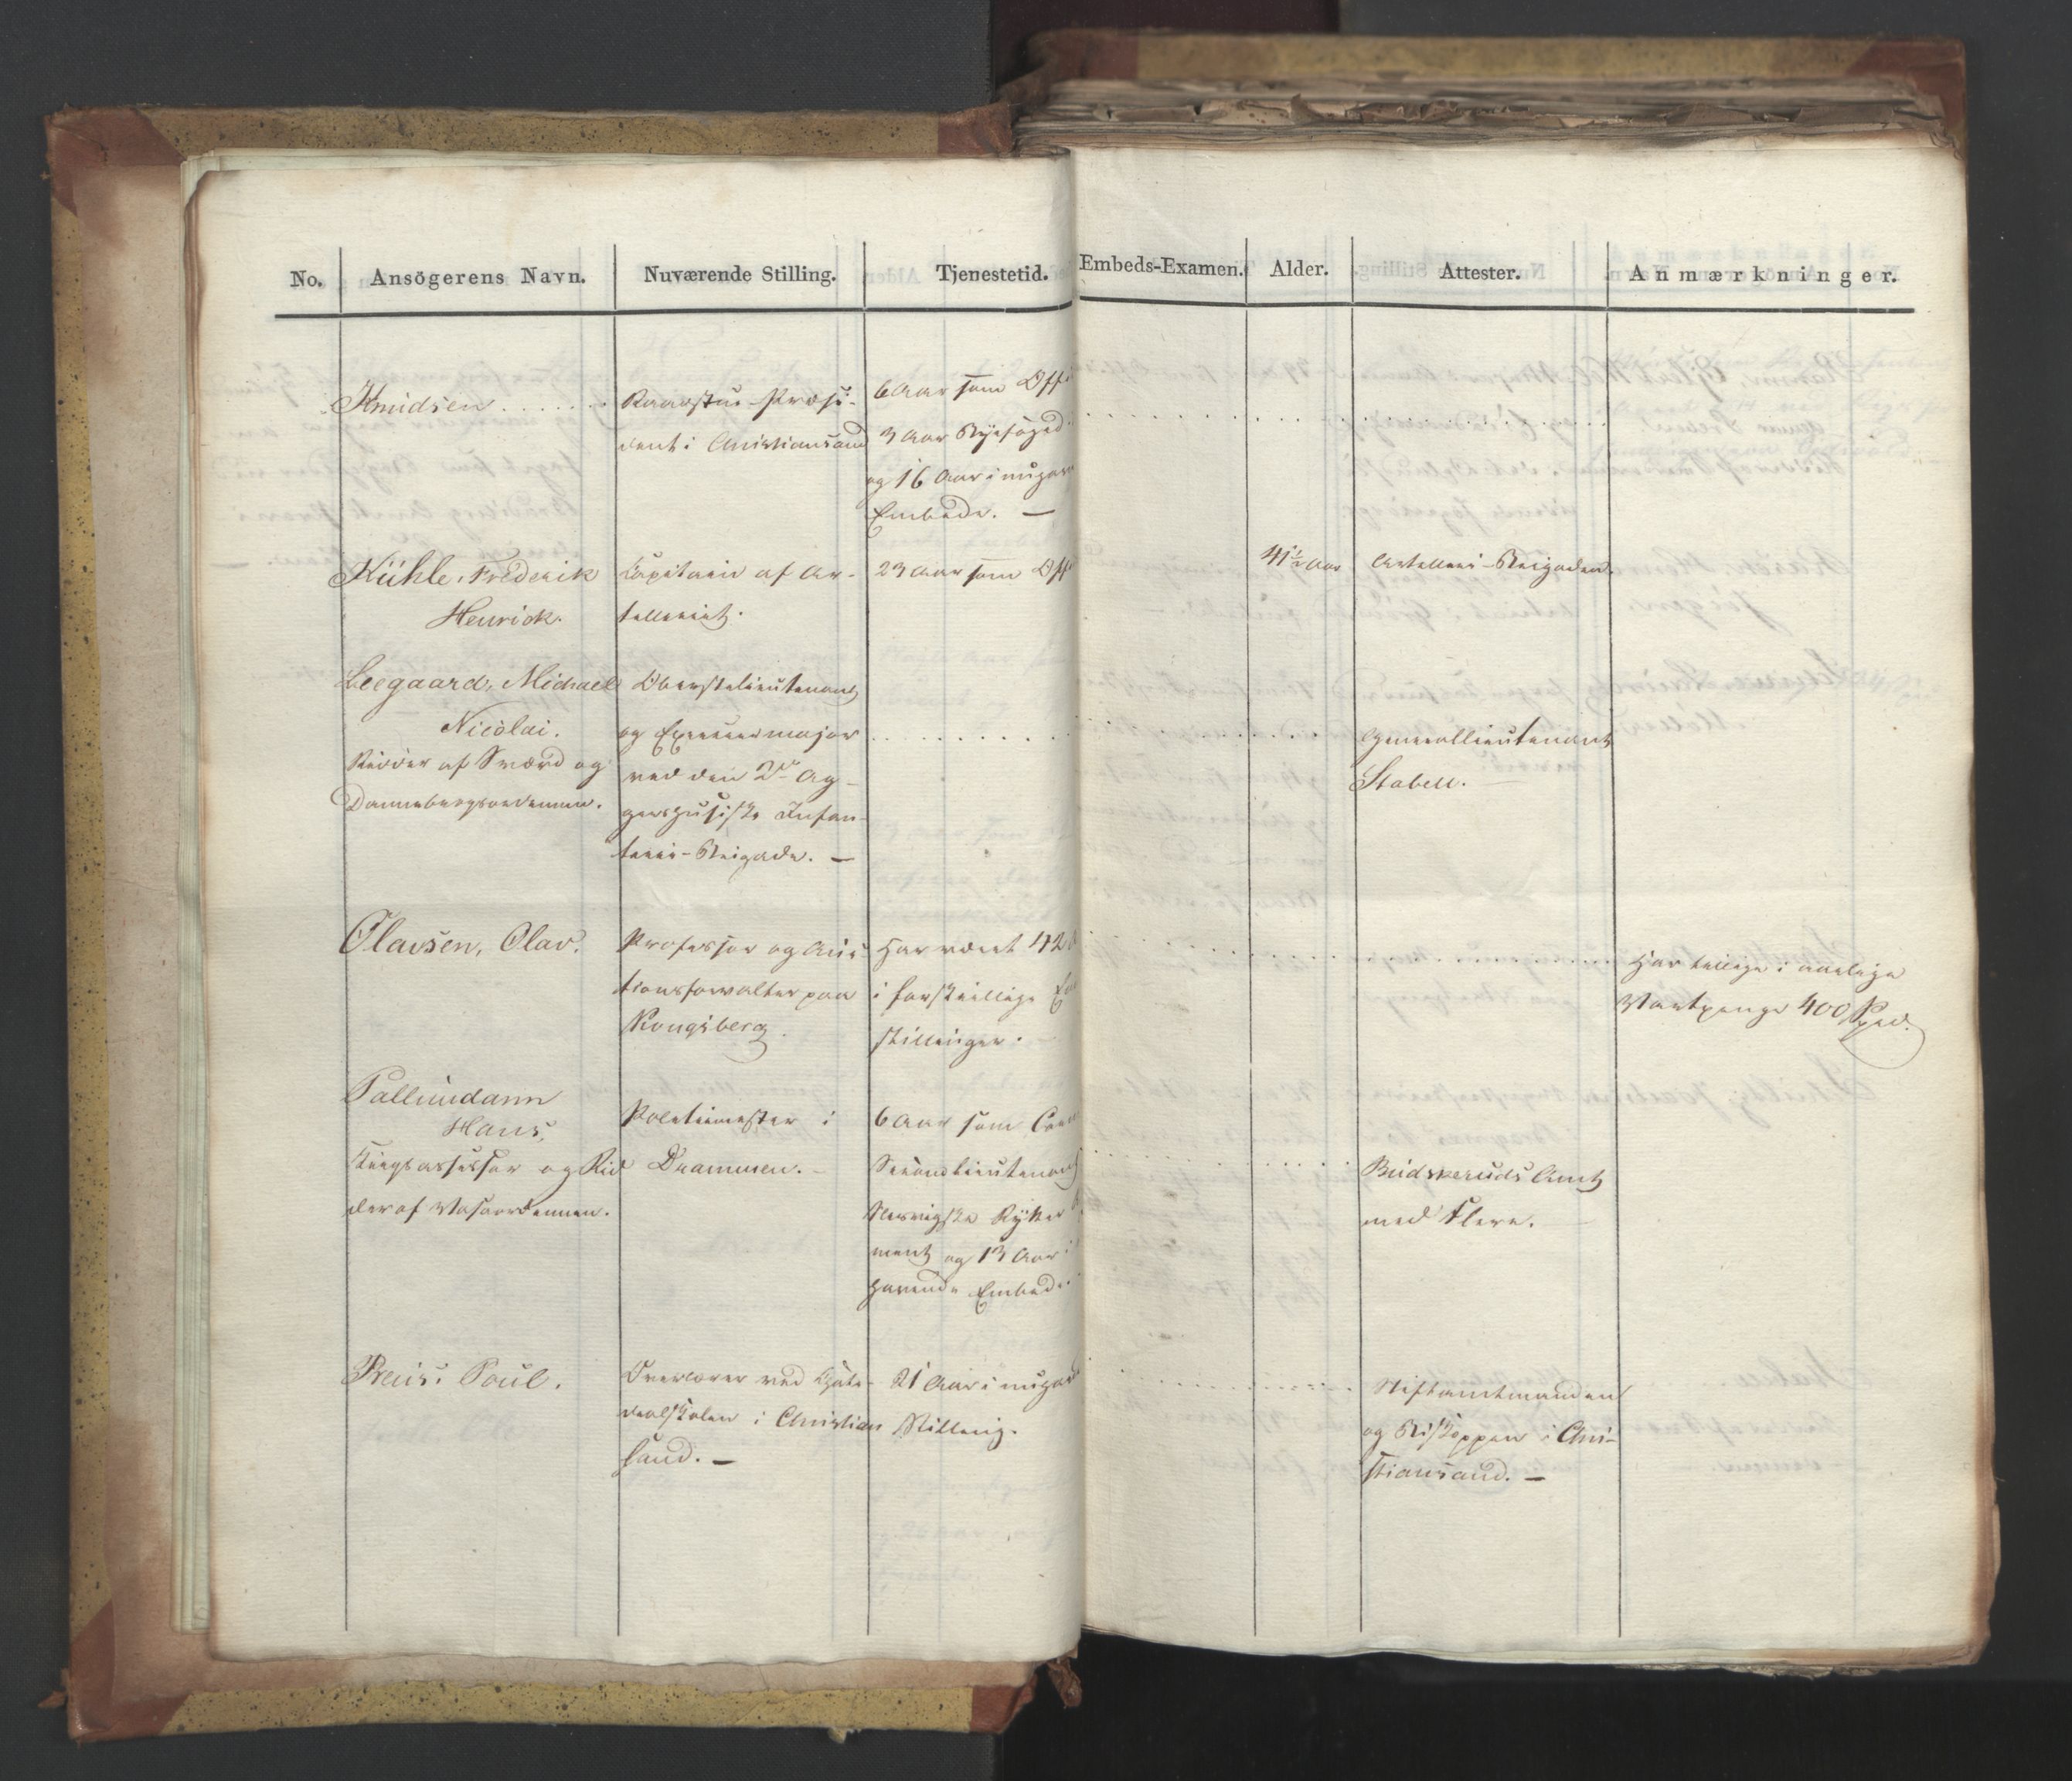 No. Ansögerens Navn. Nuværende Stilling. Tjenestetid. Embeds-Examen. Alder. Attester. Anmærkninger.
Knudsen . . . . . .
Raadstue-Præsi-
dent i Christiansand
6 Aar som Offi
3 Aar Byefoged
og 16 Aar i nuhav
Embede. —
Kühle, Frederik
Henrick.
Capitain af Ar-
telleriet.
23 Aar som Offi
41½ Aar
Artelleri-Brigaden.
Leegaard, Michael
Nicolai.
Ridder af Sværd og
Dannebrogsordenen.
Oberstelieutenant
og Exerceermajor
ved den 2den Ag-
gershusiske Infan-
teri-Brigade. —
Generallieutenant
Stabell.
Olavsen, Olav.
Professor og Auc-
tionsforvalter paa
Kongsberg.
Har været 42
i forskiellige
stillinger.
Har tillige i aarlige
Vartpenge 400
Pallundann
Hans,
Krigsassessor og Rid
der af Vasaordenen.
Politiemester i
Drammen. -
6 Aar som
Secondlieutenant
Slesvigske Rytter
ment og 13 Aar i
havende Embede.
Buskeruds Amt
med Flere.
Preus, Poul.
Overlærer ved Cathe-
dralskolen i Christian
sand. —
21 Aar i nuhav
Stilling.
Stiftamtmanden
og Biskoppen i Chri-
stiansand. —